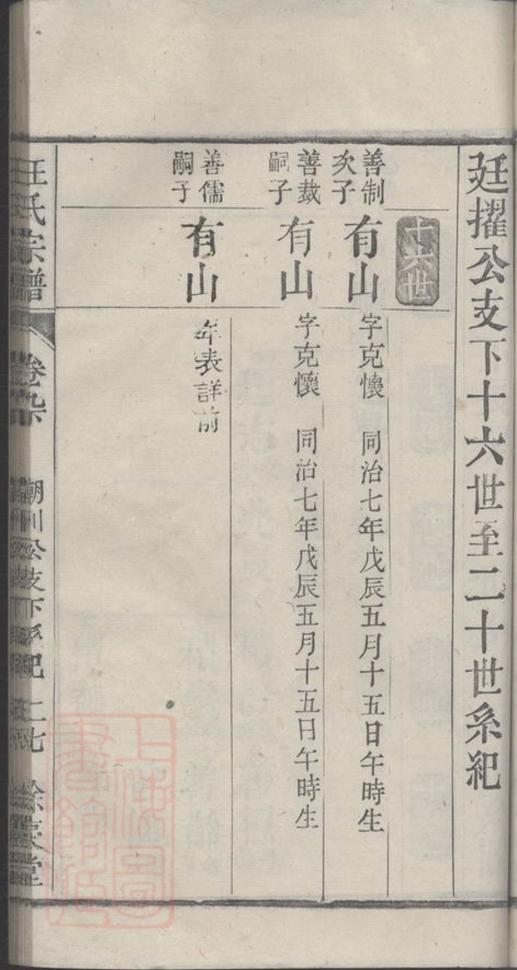 廷擢公支下十六世至二十世系紀
十六世
善制次子
有山
字克懷 同治七年戊辰五月十五日午時生
善裁嗣子
有山
字克懷 同治七年戊辰五月十五日午時生
善儒嗣子
有山
年表詳前
汪氏宗譜
公支下系紀
餘慶堂